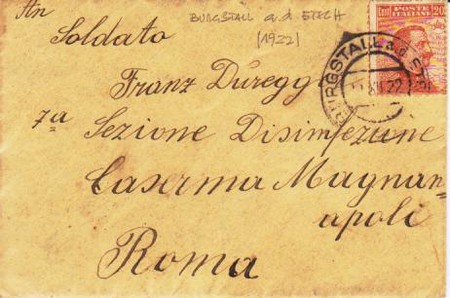 An
BURGSTALL a.d. ETSCH
[1922]
Soldato
Franz Düregg
7a Sezione Disinfezione
Caserma Magnan=
apoli
Roma
POSTE
ITALIANE
BURGSTALL a.d. ET
22